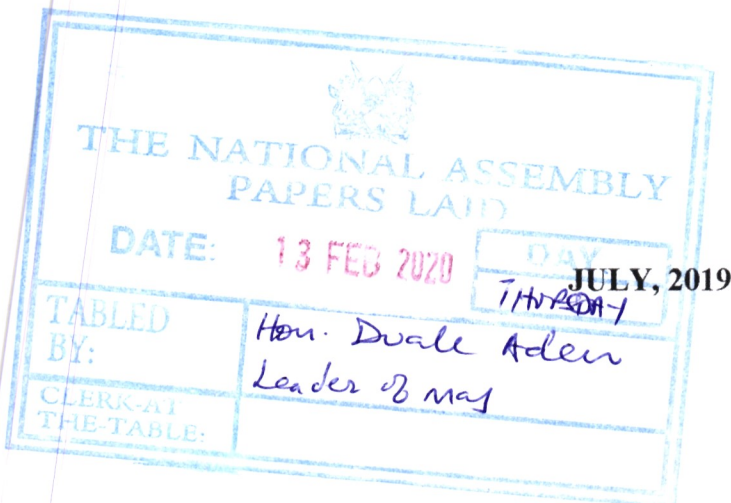 THE NATIONAL ASSEMBLY
PAPERS LAID
DATE: 13 FEB 2020
DAY
THURSDAY
JULY, 2019
TABLED
BY:
Hon. Duale Aden
Leader of Maj
CLERK-AT
THE-TABLE: